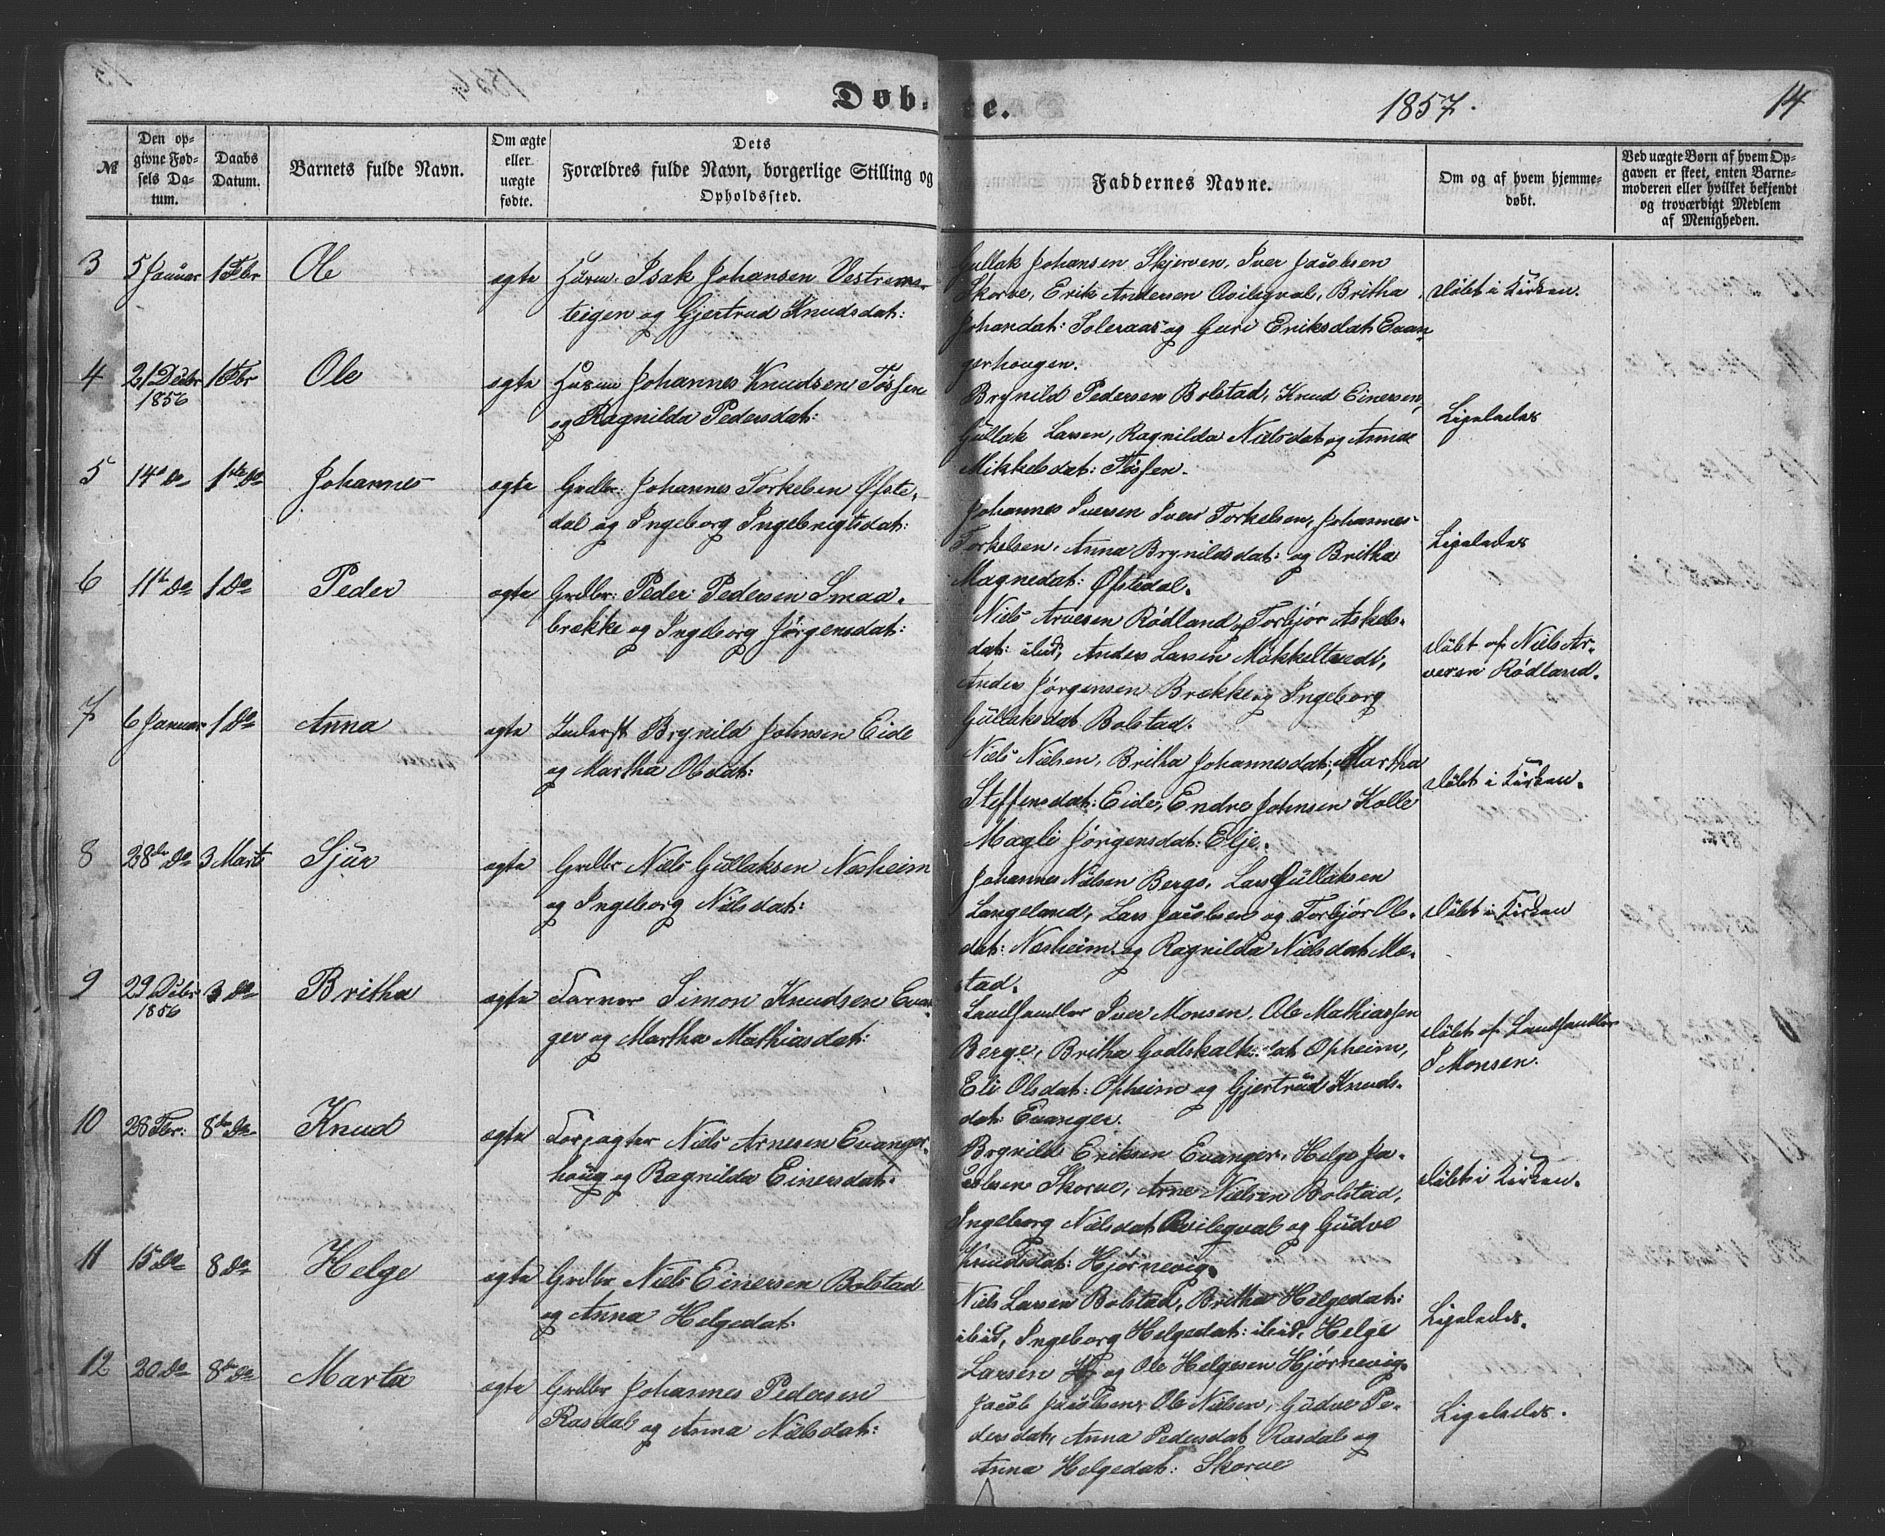 Døb. e. 1857. 14
№
Den opgivne Fødsels Datum.
Daabs Datum.
Barnets fulde Navn.
Om ægte eller uægte fødte.
Dets
Forældres fulde Navn, borgerlige Stilling og
Opholdssted.
Faddernes Navne.
Om og af hvem hjemmedøbt.
Ved uægte Børn af hvem Opgaven er skeet, enten Barnemoderen eller hvilket bekjendt og troværdigt Medlem af Menigheden.
3 5 Januar 1 Febr Ole ægte Huusm. Isak Johansen Vestrems-
teigen og Gjertrud Knudsdat:
Gullak Johansen Skjerven, Iver Jacobsen
Skorve, Erik Andersen Qvilegval, Britha
Johansdat: Toleraas og Guri Eriksdat Evan-
gerhougen.
Døbt i Kirken.
4 21 Decbr 1856 1 Febr Ole ægte Huusm Johannes Knudsen Tøssen
og Ragnilda Pedersdat:
Brynild Pedersen Bolstad, Knud Einersen,
Gullak Larsen, Ragnilda Nielsdat og Anna
Mikkelsdat: Tøssen.
Ligeledes
5 14 do 1ste do Johannes ægte Grdbr: Johannes Torkelsen Øfste-
dal og Ingeborg Ingebrigtsdat:
Johannes Iversen Iver Torkelsen, Johannes
Torkelsen, Anna Brynildsdat: og Britha
Magnedat: Øfstedal.
Ligeledes
6 11te do 1 do Peder ægte Grdbr: Peder Pedersen Smaa-
brække og Ingeborg Jørgensdat:
Niels Arvesen Rødland og Torbjør Askels-
dat: ibid, Anders Larsen Møkkeltvedt,
Anders Jørgensen Brække og Ingeborg
Gullaksdat Bolstad.
Døbt af Niels Ar-
vesen Rødland.
7 6 Januar 1 do Anna ægte Inderst Brynild Johnsen Eide
og Martha Olsdat:
Niels Nielsen, Britha Johannesdat:, Martha
Steffensdat: Eide, Endre Johnsen Kolle
Magli Jørgensdat: Elje.
Døbt i Kirken.
8 28de do 3 Marts Sjur ægte Grdbr Niels Gullaksen Næsheim
og Ingeborg Nilsdat:
Johannes Nilsen Berge, Lars Gullaksen
Langeland, Lars Jacobsen og Torbjør Ols-
dat: Næsheim og Ragnilda Nielsdat Mæ-
stad.
Døbt i Kirken
9 29 Decbr 1856 3 do Britha ægte Farver Simon Knudsen Evan-
ger og Martha Mathiasdat:
Landhandler Iver Monsen, Ole Mathiassen
Berge, Britha Godtskalksdat Opheim,
Eli Olsdat: Opheim og Gjertrud Knuds-
dat: Evanger.
Døbt af Landhandler
I Monsen.
10 28 Febr: 8de do Knud ægte Forpagter Niels Arnesen Evanger-
houg og Ragnilda Einersdat:
Brynild Eriksen Evanger, Helge Ja-
cobsen Skorve, Arne Nielsen Bolstad,
Ingeborg Nielsdat Qvilegval og Gudve
Knudsdat: Hjørnevig.
Døbt i Kirken.
11 15 do 8 do Helge ægte Grdbr Niels Einersen Bolstad
og Anna Helgedat:
Niels Larsen Bolstad, Britha Helgedat:
ibid, Ingeborg Helgedat: ibid, Helge
Larsen og Ole Helgesen Hjørnevig.
Ligeledes.
12 20 do 8de do Marta ægte Grdbr Johannes Pedersen
Rasdal og Anna Nielsdat:
Jacob Jacobsen, Ole Nielsen, Gudve Pe-
dersdat, Anna Pedersdat Rasdal og
Anna Helgedat: Skorve
Ligeledes.